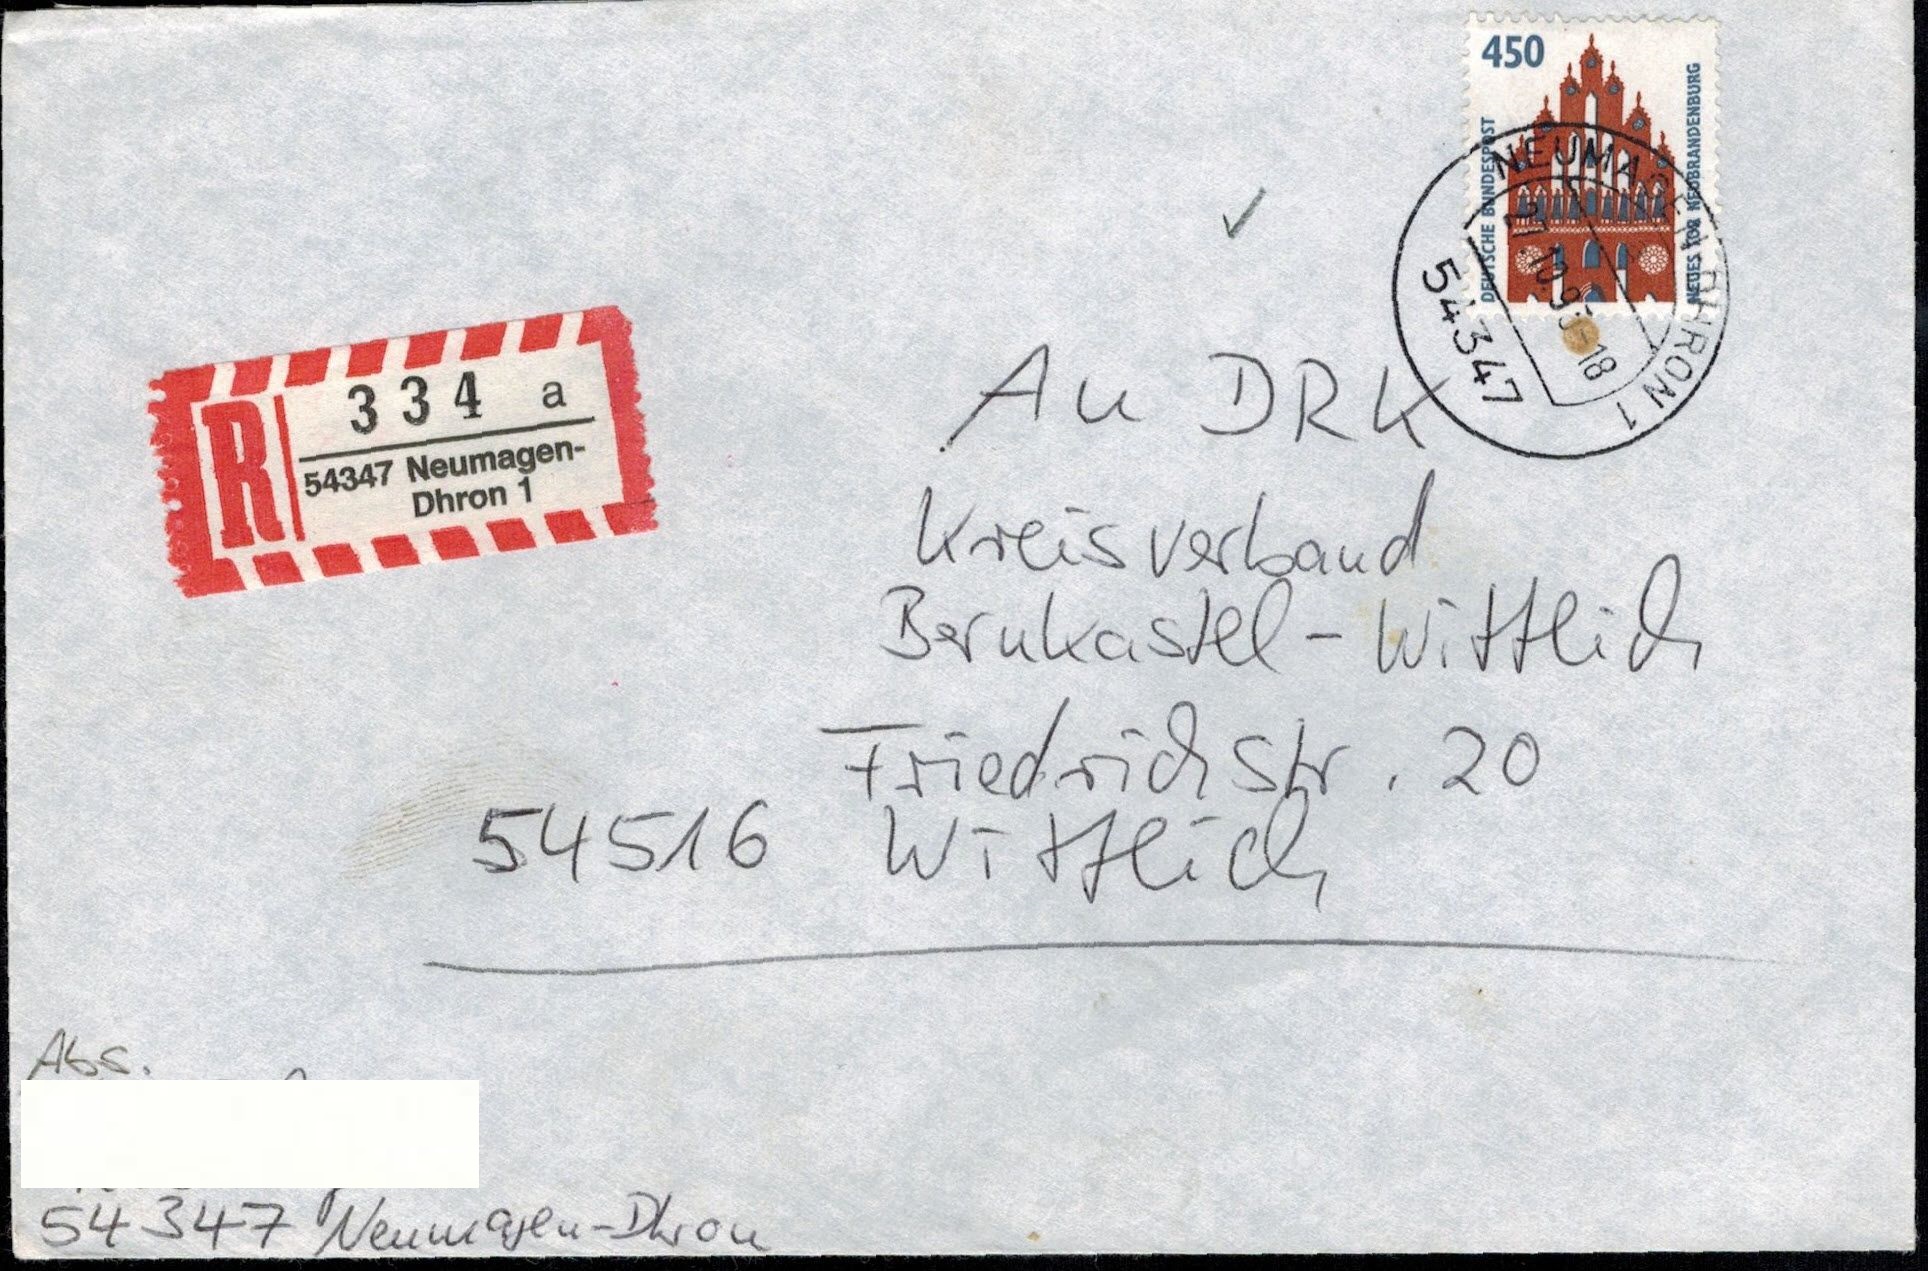 450
DEUTSCHE BUNDESPOST
NEUES TOR NEUBRANDENBURG
NEUMAGEN-DHRON 1
10.95-18
54347
R
334 a
54347 Neumagen-
Dhron 1
An DRK
Kreisverband
Bernkastel-Wittlich
Friedrichstr. 20
54516 Wittlich
Abs.
54347 Neumagen-Dhron